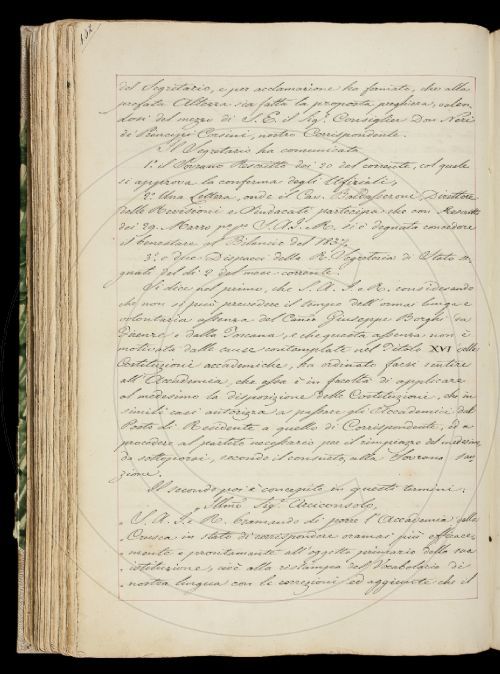 132
del Segretario, e per acclamazione ha fermato, che alla
prefata Altezza sia fatta la proposta preghiera, valen-
dosi del mezzo di S. E. il Sig.r Consiglier Don Neri
de' Principi Corsini, nostro Corrispondente.
Il Segretario ha comunicato
1.o il Sovrano Rescritto dei 20 del corrente, col quale
si approva la conferma degli Ufiziali;
2.o Una Lettera, onde il Cav. Baldasseroni Direttore
delle Revisioni e Sindacati partecipa che con
dei 29. Marzo pp S. A. I. e R. si è degnata concedere
il benestare al Bilancio del 183
3.o e Due Dispacci della R. Segreteria di Stato se-
gnati del dì 2 del mese corrente.
Si dice nel primo, che S. A. I. e R. considerando
che non si può prevedere il tempo dell'ormai lunga e
volontaria assenza del Can.co Giuseppe Borghi da
Firenze e dalla Toscana, e che questa assenza non è
motivata dalle cause contemplate nel Titolo XVI delle
Costituzioni accademiche, ha ordinato farsi sentire
all'Accademia, che essa è in facoltà di applicare
al medesimo la disposizione delle Costituzioni, che in
simili casi autorizza a passare gli Accademici dal
Posto di Residente a quello di Corrispondente, ed a
procedere al partito necessario per il rimpiazzo del medesimo
da sottoporsi, secondo il consueto, alla Sovrana san-
zione.
Il secondo poi è concepito in questi termini:
Illmo Sig.r Arciconsolo,
„ S. A. I. e R. bramando di porre l'Accademia della
„ Crusca in stato di corrispondere oramai più efficace-
„ mente e prontamente all'oggetto primario della sua
„ istituzione, cioè alla ristampa del Vocabolario di
„ nostra lingua con le correzioni ed aggiunte che il